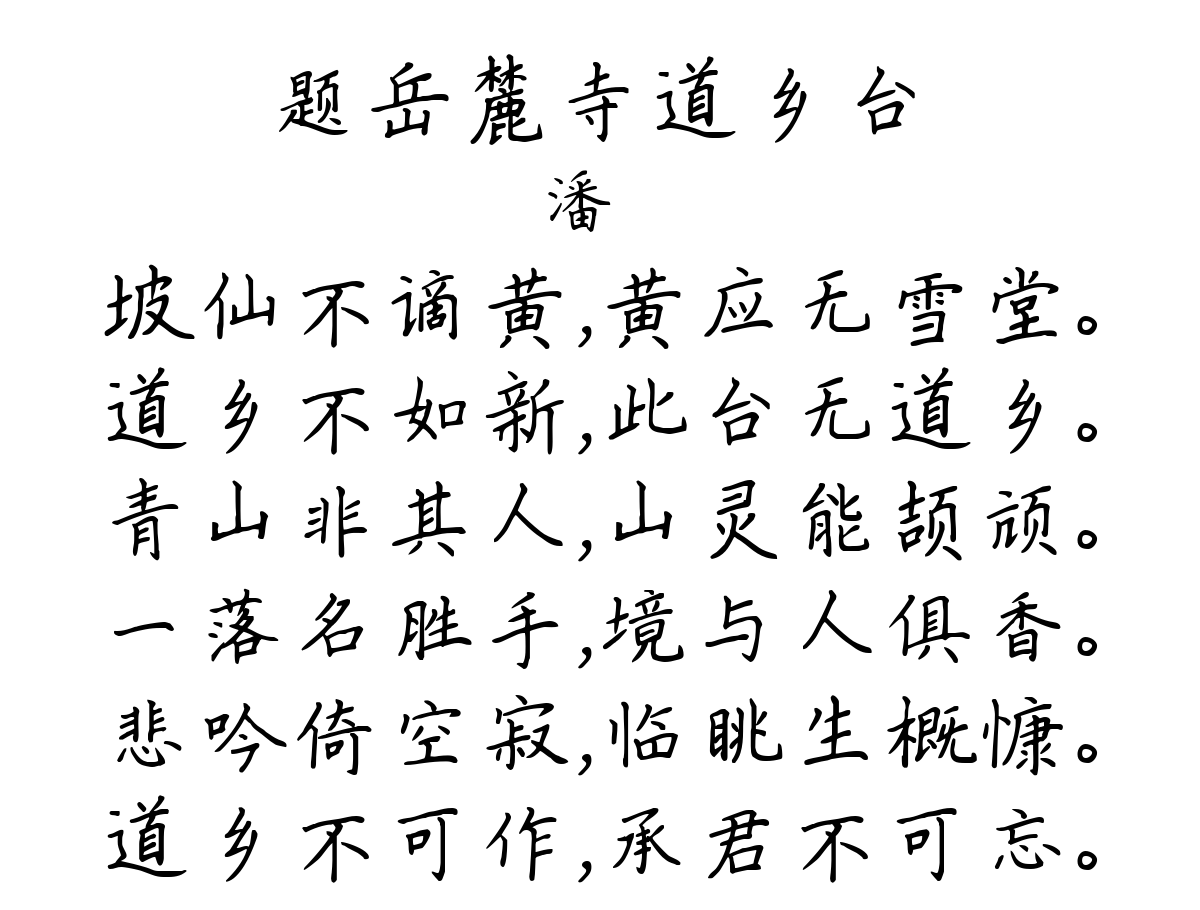 题岳麓寺道乡台
潘
坡仙不谪黄,黄应无雪堂。
道乡不如新,此台无道乡。
青山非其人,山灵能颉颃。
一落名胜手,境与人俱香。
悲吟倚空寂,临眺生概慷。
道乡不可作,承君不可忘。